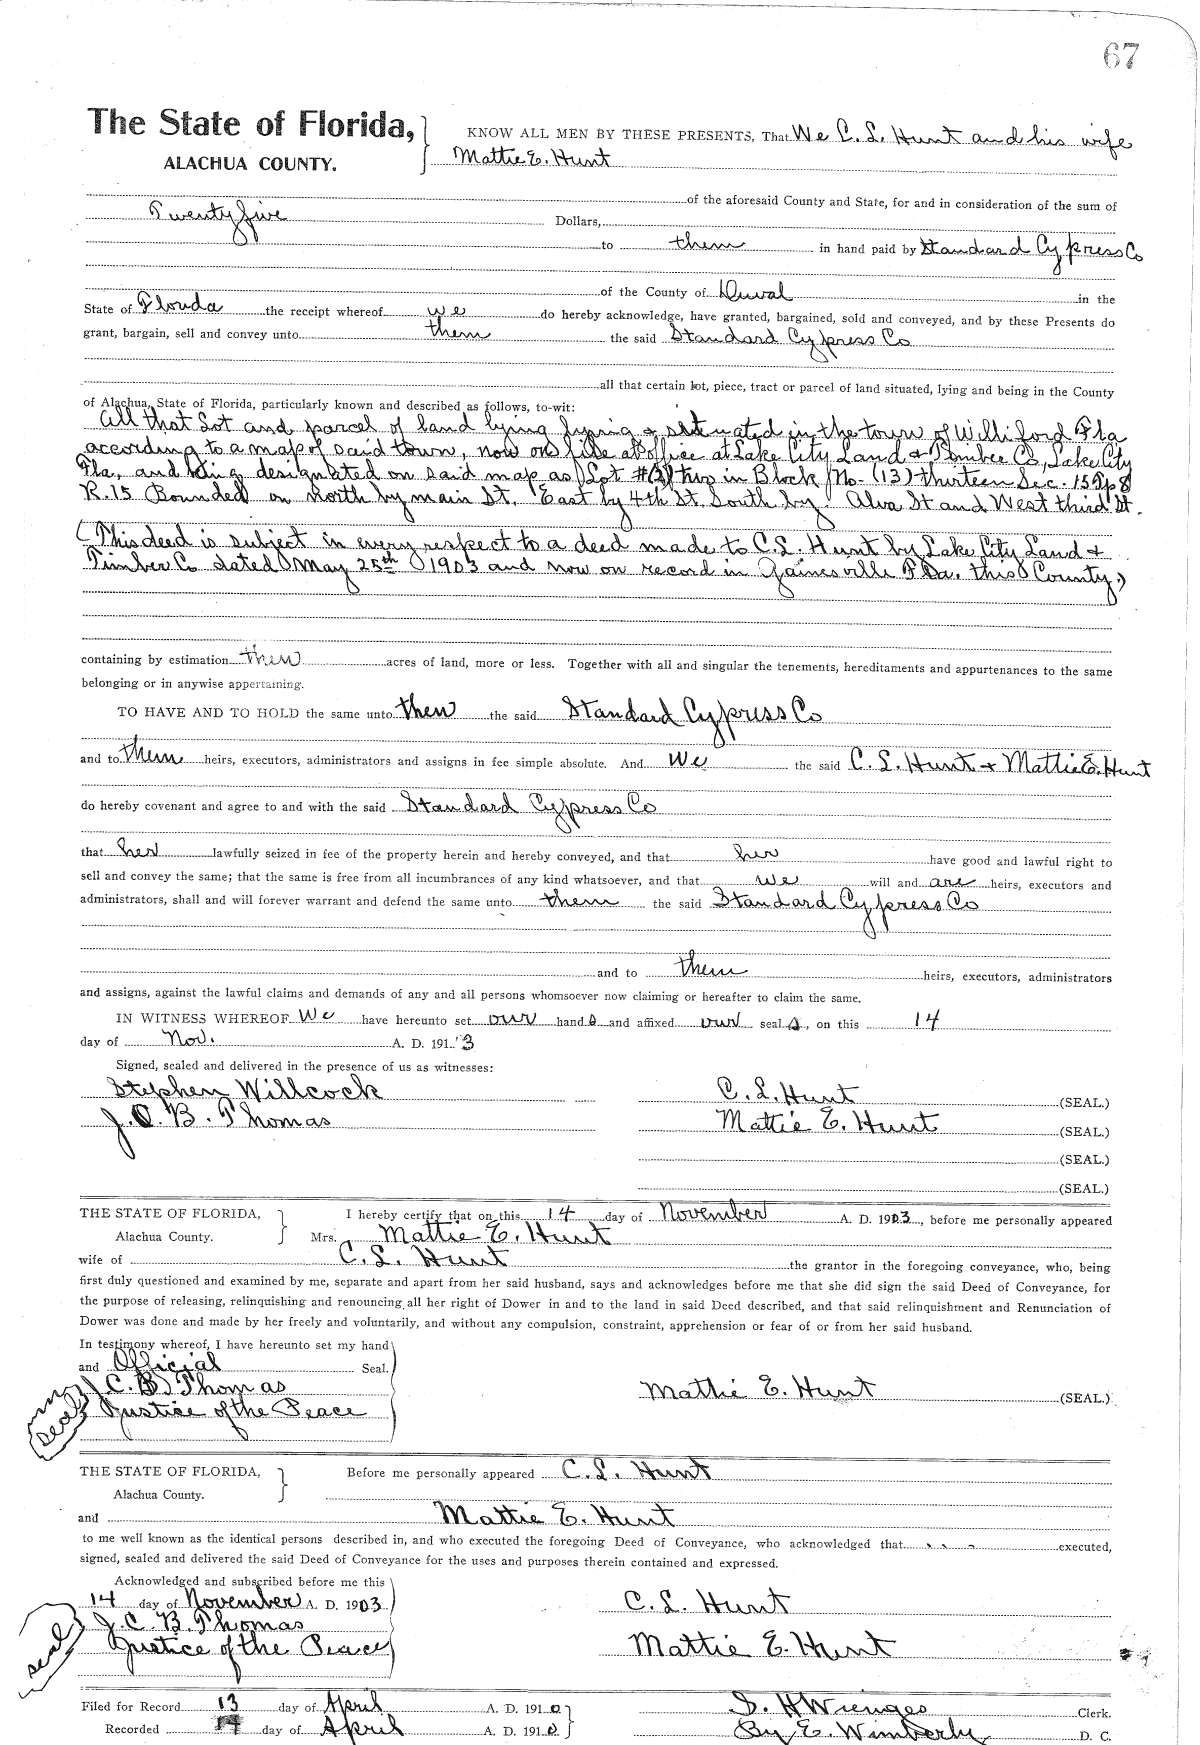 67
The State of Florida, KNOW ALL MEN BY THESE PRESENTS, That We C. L. Hunt and his wife
ALACHUA COUNTY. Mattie E. Hunt
of the aforesaid County and State, for and in consideration of the sum of
Twenty five Dollars,
to them in hand paid by Standard Cypress Co
of the County of Duval in the
State of Florida the receipt whereof we do hereby acknowledge, have granted, bargained, sold and conveyed, and by these Presents do
grant, bargain, sell and convey unto them the said Standard Cypress Co
all that certain lot, piece, tract or parcel of land situated, lying and being in the County
of Alachua, State of Florida, particularly known and described as follows, to-wit:
All that Lot and parcel of land lying & situated in the town of Williford Fla
according to a map of said town, now on file at office at Lake City Land & Timber Co, Lake City
Fla, and being designated on said map as Lot #(2) two in Block No- (13) thirteen Sec- 15 Tp 8
R. 15 Bounded on North by main St. East by 4th St. South by Alva St and West third St.
(This deed is subject in every respect to a deed made to C. L. Hunt by Lake City Land &
Timber Co dated May 25th 1903 and now on record in Gainesville Fla. this County)
containing by estimation acres of land, more or less. Together with all and singular the tenements, hereditaments and appurtenances to the same
belonging or in anywise appertaining.
TO HAVE AND TO HOLD the same unto them the said Standard Cypress Co
and to them heirs, executors, administrators and assigns in fee simple absolute. And We the said C. L. Hunt & Mattie E. Hunt
do hereby covenant and agree to and with the said Standard Cypress Co
that her lawfully seized in fee of the property herein and hereby conveyed, and that her have good and lawful right to
sell and convey the same; that the same is free from all incumbrances of any kind whatsoever, and that we will and are heirs, executors and
administrators, shall and will forever warrant and defend the same unto them the said Standard Cypress Co
and to them heirs, executors, administrators
and assigns, against the lawful claims and demands of any and all persons whomsoever now claiming or hereafter to claim the same.
IN WITNESS WHEREOF We have hereunto set our hands and affixed our seals, on this 14
day of Nov. A. D. 191 '3
Signed, sealed and delivered in the presence of us as witnesses:
Stephen Willcock C. L. Hunt (SEAL.)
J. C. B. Thomas Mattie E. Hunt (SEAL.)
(SEAL.)
(SEAL.)
THE STATE OF FLORIDA, I hereby certify that on this 14 day of November A. D. 1903, before me personally appeared
Alachua County. Mrs. Mattie E. Hunt
wife of C. L. Hunt the grantor in the foregoing conveyance, who, being
first duly questioned and examined by me, separate and apart from her said husband, says and acknowledges before me that she did sign the said Deed of Conveyance, for
the purpose of releasing, relinquishing and renouncing all her right of Dower in and to the land in said Deed described, and that said relinquishment and Renunciation of
Dower was done and made by her freely and voluntarily, and without any compulsion, constraint, apprehension or fear of or from her said husband.
In testimony whereof, I have hereunto set my hand
and Official Seal.
J C. B. Thomas Mattie E. Hunt (SEAL.)
seal Justice of the Peace
THE STATE OF FLORIDA, Before me personally appeared C. L. Hunt
Alachua County.
and Mattie E. Hunt
to me well known as the identical persons described in, and who executed the foregoing Deed of Conveyance, who acknowledged that executed,
signed, sealed and delivered the said Deed of Conveyance for the uses and purposes therein contained and expressed.
Acknowledged and subscribed before me this
14 day of November A. D. 1903 C. L. Hunt
J. C. B. Thomas
seal Justice of the Peace Mattie E. Hunt
Filed for Record 13 day of April A. D. 1910 S. H Wienges Clerk.
Recorded day of April A. D. 1910 By E. Wimberly D. C.